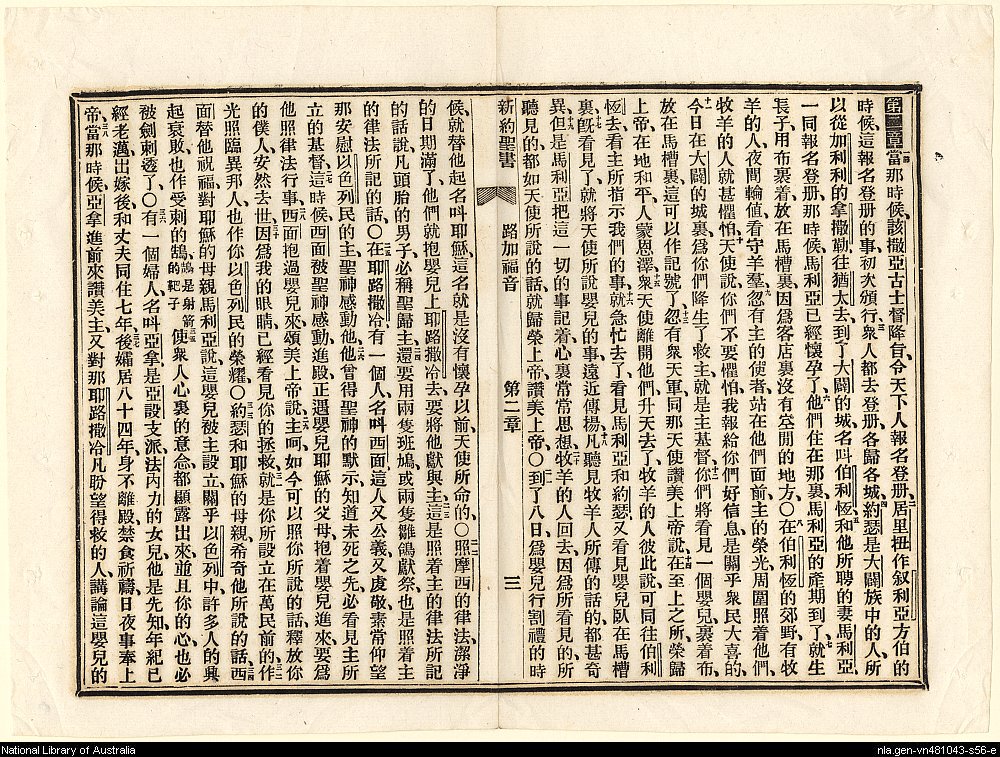 第二章當那時候、該撒亞古士督降旨、令天下人報名登册、居里扭作叙利亞方伯的
時候、這報名登册的事、初次頒行、衆人都去登册、各歸各城、約瑟是大闢族中的人、所
以從加利利的拿撒勒、往猶太去、到了大闢的城、名呌伯利恆、和他所聘的妻馬利亞、
一同報名登册、那時候、馬利亞已經懷孕了、他們住在那裏、馬利亞的產期到了、就生
長子、用布裹着、放在馬槽裏、因爲客店裏沒有空閒的地方、○在伯利恆的郊野、有牧
羊的人、夜間輪值、看守羊羣、忽有主的使者、站在他們面前、主的榮光周圍照着他們、
牧羊的人就甚懼怕、天使說、你們不要懼怕、我報給你們好信息、是關乎衆民大喜的、
今日在大闢的城裏、爲你們降生了救主、就是主基督、你們將看見一個嬰兒、裹着布、
放在馬槽裏、這可以作記號了、忽有衆天軍、同那天使讚美上帝說、在至上之所、榮歸
上帝、在地和平、人蒙恩澤、衆天使離開他們、升天去了、牧羊的人彼此說、可同往伯利
恆去、看主所指示我們的事、就急忙去了、看見馬利亞和約瑟、又看見嬰兒臥在馬槽
裏、旣看見了、就將天使所說嬰兒的事、遠近傳揚、凡聽見牧羊人所傳的話的、都甚奇
異、但是馬利亞把這一切的事記着、心裏常常思想、牧羊的人回去、因爲所看見的、所
聽見的、都如天使所說的話、就歸榮上帝、讚美上帝、○到了八日、爲嬰兒行割禮的時
新約聖書 路加福音 第二章 三
候、就替他起名呌耶穌、這名就是沒有懷孕以前、天使所命的、○照摩西的律法、潔淨
的日期滿了、他們就抱嬰兒上耶路撒冷去、要將他獻與主、這是照着主的律法所記
的話、說、凡頭胎的男子、必稱聖歸主、還要用兩隻班鳩、或兩隻雛鴿獻祭、也是照着主
的律法所記的話、○在耶路撒冷、有一個人、名呌西面、這人又公義、又虔敬、素常仰望
那安慰以色列民的主、聖神感動他、他曾得聖神的默示、知道未死之先、必看見主所
立的基督、這時候西面被聖神感動進殿、正遇嬰兒耶穌的父母、抱着嬰兒進來、要爲
他照律法行事、西面抱過嬰兒來、頌美上帝說、主呵、如今可以照你所說的話、釋放你
的僕人、安然去世、因爲我的眼睛、已經看見你的拯救、就是你所設立在萬民前的、作
光照臨異邦人、也作你以色列民的榮耀、○約瑟和耶穌的母親、希奇他所說的話、西
面替他祝福、對耶穌的母親馬利亞說、這嬰兒被主設立、關乎以色列中許多人的興
起衰敗、也作受刺的鵠、鵠是射箭的靶子使衆人心裏的意念都顯露出來、並且你的心、也必
被劍刺透了、○有一個婦人、名呌亞拿、是亞設支派、法内力的女兒、他是先知、年紀已
經老邁、出嫁後、和丈夫同住七年、後孀居八十四年、身不離殿、禁食祈禱、日夜事奉上
帝、當那時候、亞拿進前來讚美主、又對那耶路撒冷凡盼望得救的人、講論這嬰兒的
National Library of Australia
nla.gen-vn481043-s56-e